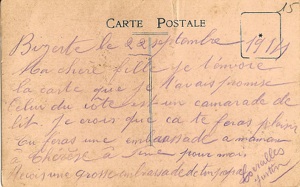 15
CARTE POSTALE
Bizerte le 22 septembre 1914
Ma chère fille je t'envoie
la carte que je t'avais promise
Celui du côté est un camarade de
lit. Je crois que ca te feras plaisir
Tu feras une embrassade a maman
a Thérèse à pour moi
Recois une grosse embrassade de ton papa